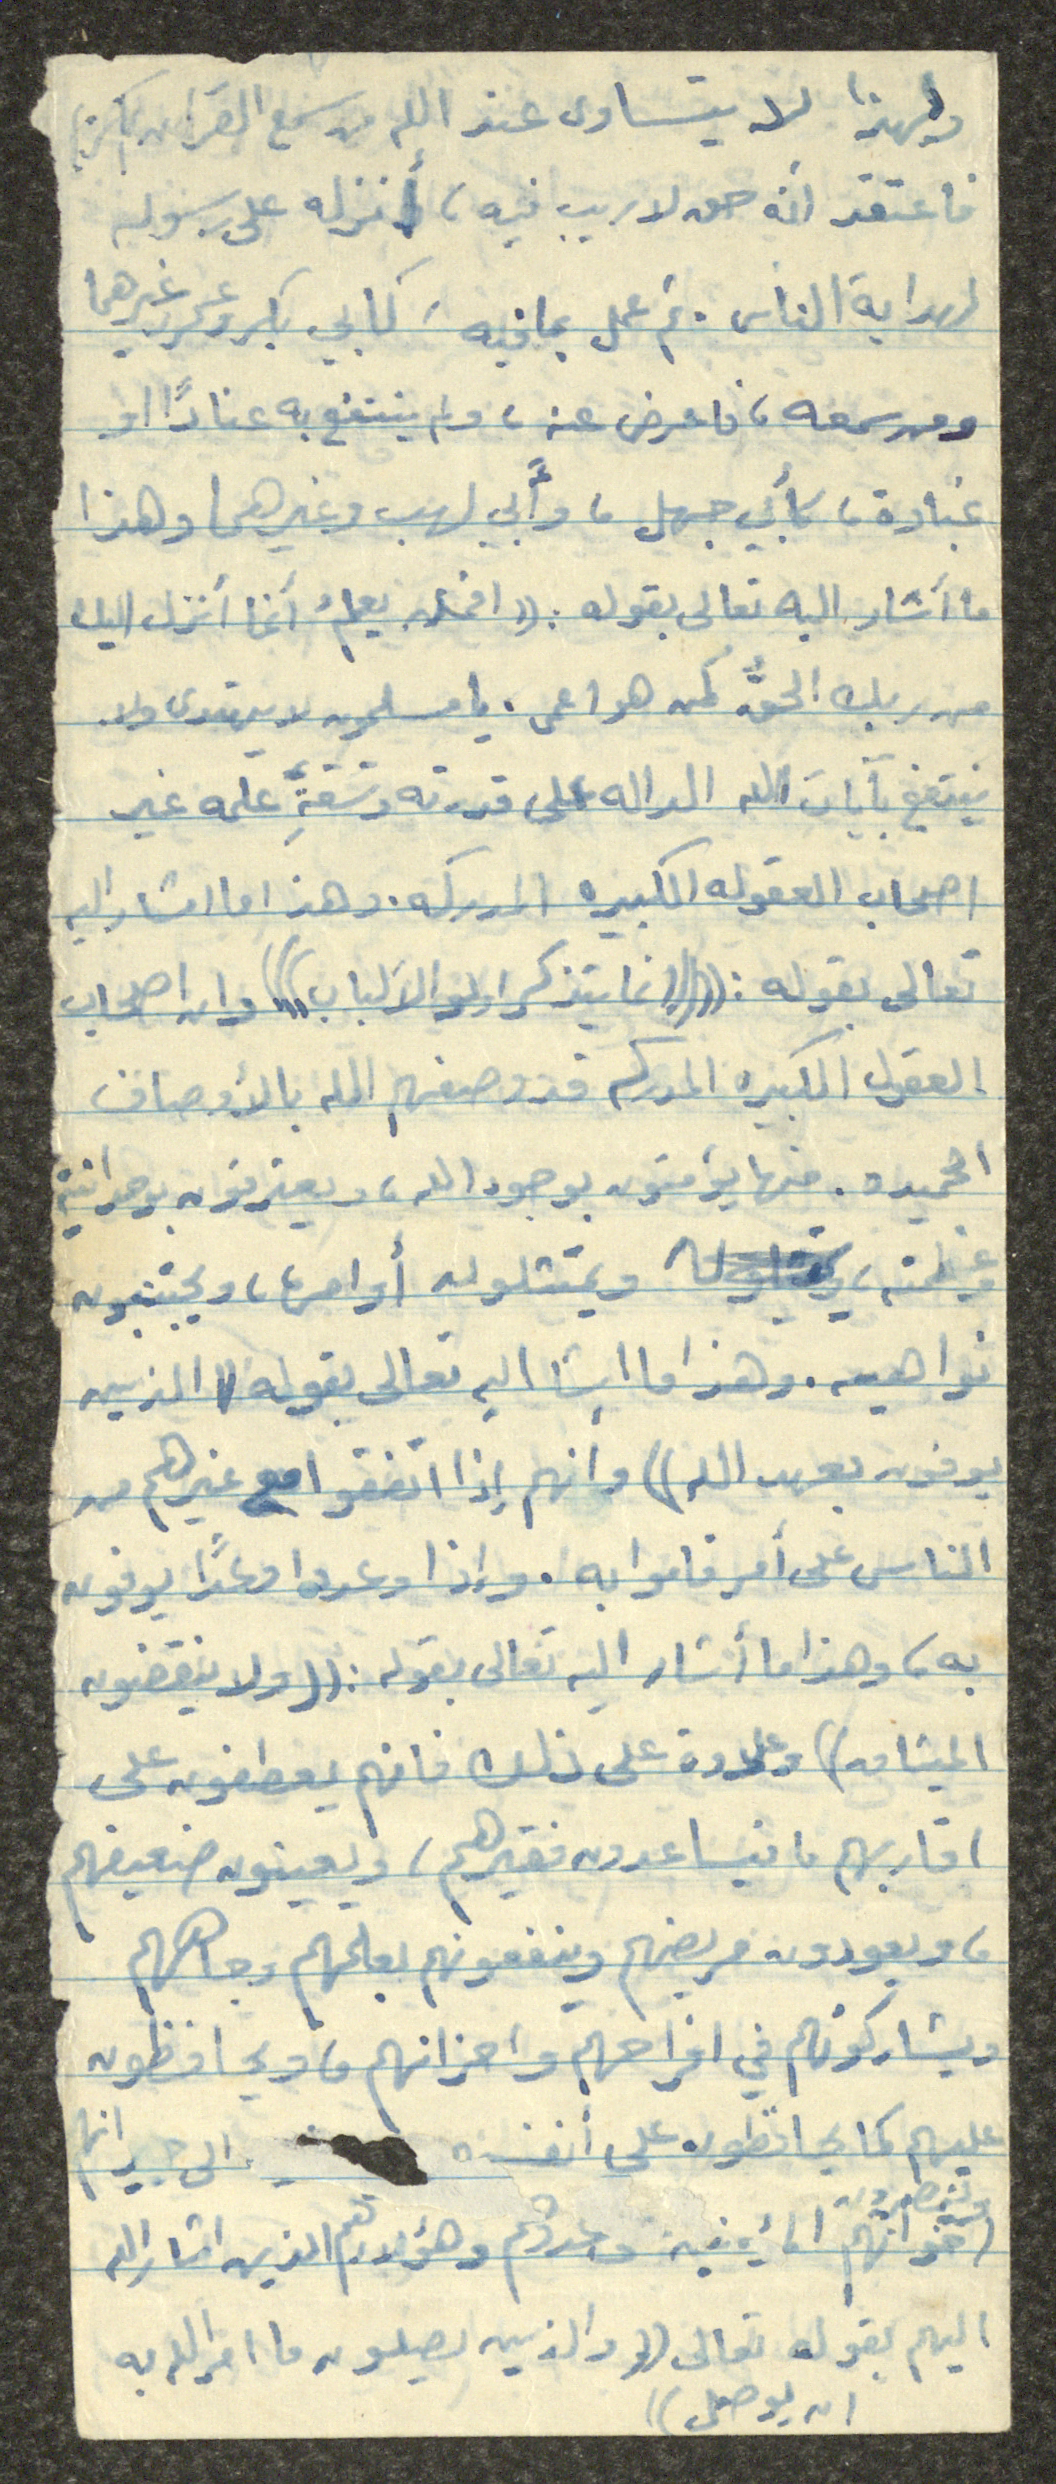 ولهذا لا يتساوى عند الله من سمع القرآن الكريم
فاعتقد أنه حق لا ريب فيه، أنزله على رسوله
لهداية الناس. ثم عمل بما فيه، كأبي بكر وعمر وغيرهما
ومن سمعه، فاعرض عنه، ولم ينتفع به عنادًا او
غباوة، كأبي جهل، وأبي لهب وغيرهما وهذا
ما أشار اليه تعالى بقوله: ((افمن يعلم أنما أنزل اليك
من ربك الحقُّ كمن هو اعمى. يا مسلمون لا يهتدى ولا
ينتفع بآيات الله الداله على قدرته وسَعَةِ علمه غير
اصحاب العقول الكبيره المدركه. وهذا ما اشار اليه
تعالى بقوله: ((إنما يتذكر اولو الالباب)) وان اصحاب
العقول الكبيره المدركه قد وصفهم الله بالأوصاف
الحميده. منها يؤمنون بوجود الله، ويعترفون بوحدانيته
وعظمته، ويمتثلون أوامره، ويجتنبون
نواهيه. وهذا ما اشا اليه تعالى بقوله ((الذين
يوفون بعهد الله)) وأنهم إذا اتفقوا مع غيرهم من
الناس على أمر قاموا به. وإذا وعدوا وعدًا يوفون
به، وهذا ما أشار اليه تعالى بقوله: ((ولا ينقضون
الميثاق)) وعلاوة على ذلك فانهم يعطفون على
اقاربهم، فيساعدون فقيرهم، ويعينون ضعيفهم
، ويعودون مريضهم وينفعونهم بعلمهم وجاههم
ويشاركونهم في افراحهم واحزانهم، ويحافظون
عليهم كما يحافظون على الى جيرانهم
اخوانهم وهؤلاء هم الذين اشار الله
اليهم بقوله تعالى ((والذين يصلون ما امر الله به
ان يوصل))